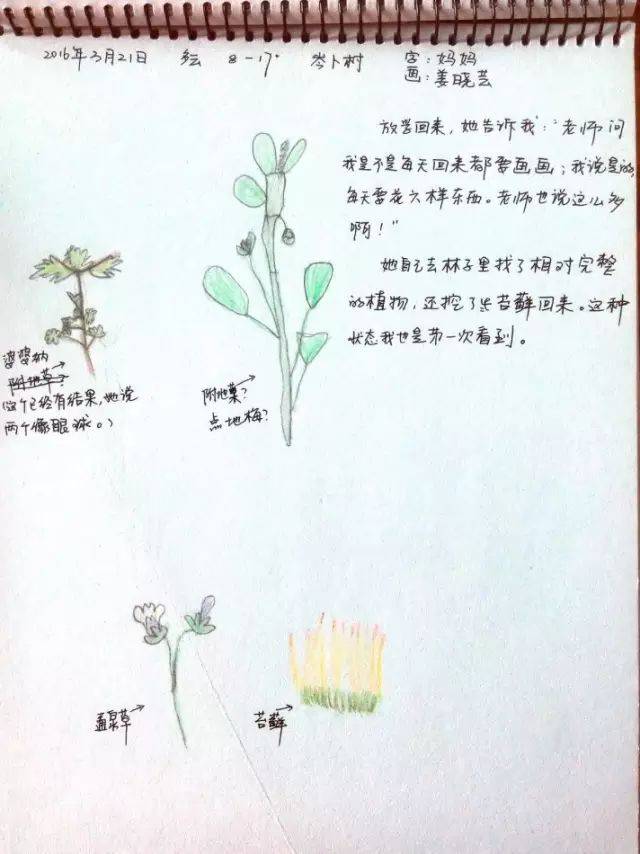 2016年3月21日 多云 8-17° 岑卜村 字:妈妈
画:姜晓芸
放学回来,她告诉我:“老师问
我是不是每天回来都要画画;我说是的,
每天要花六样东西。老师也说这么多
啊!”
她自己去林子里找了相对完整
的植物,还挖了些苔藓回来。这种
状态我也是第一次看到。
婆婆纳
附地草?
(这个已经有结果,她说
两个像眼球。)
附地菜?
点地梅?
通泉草
苔藓